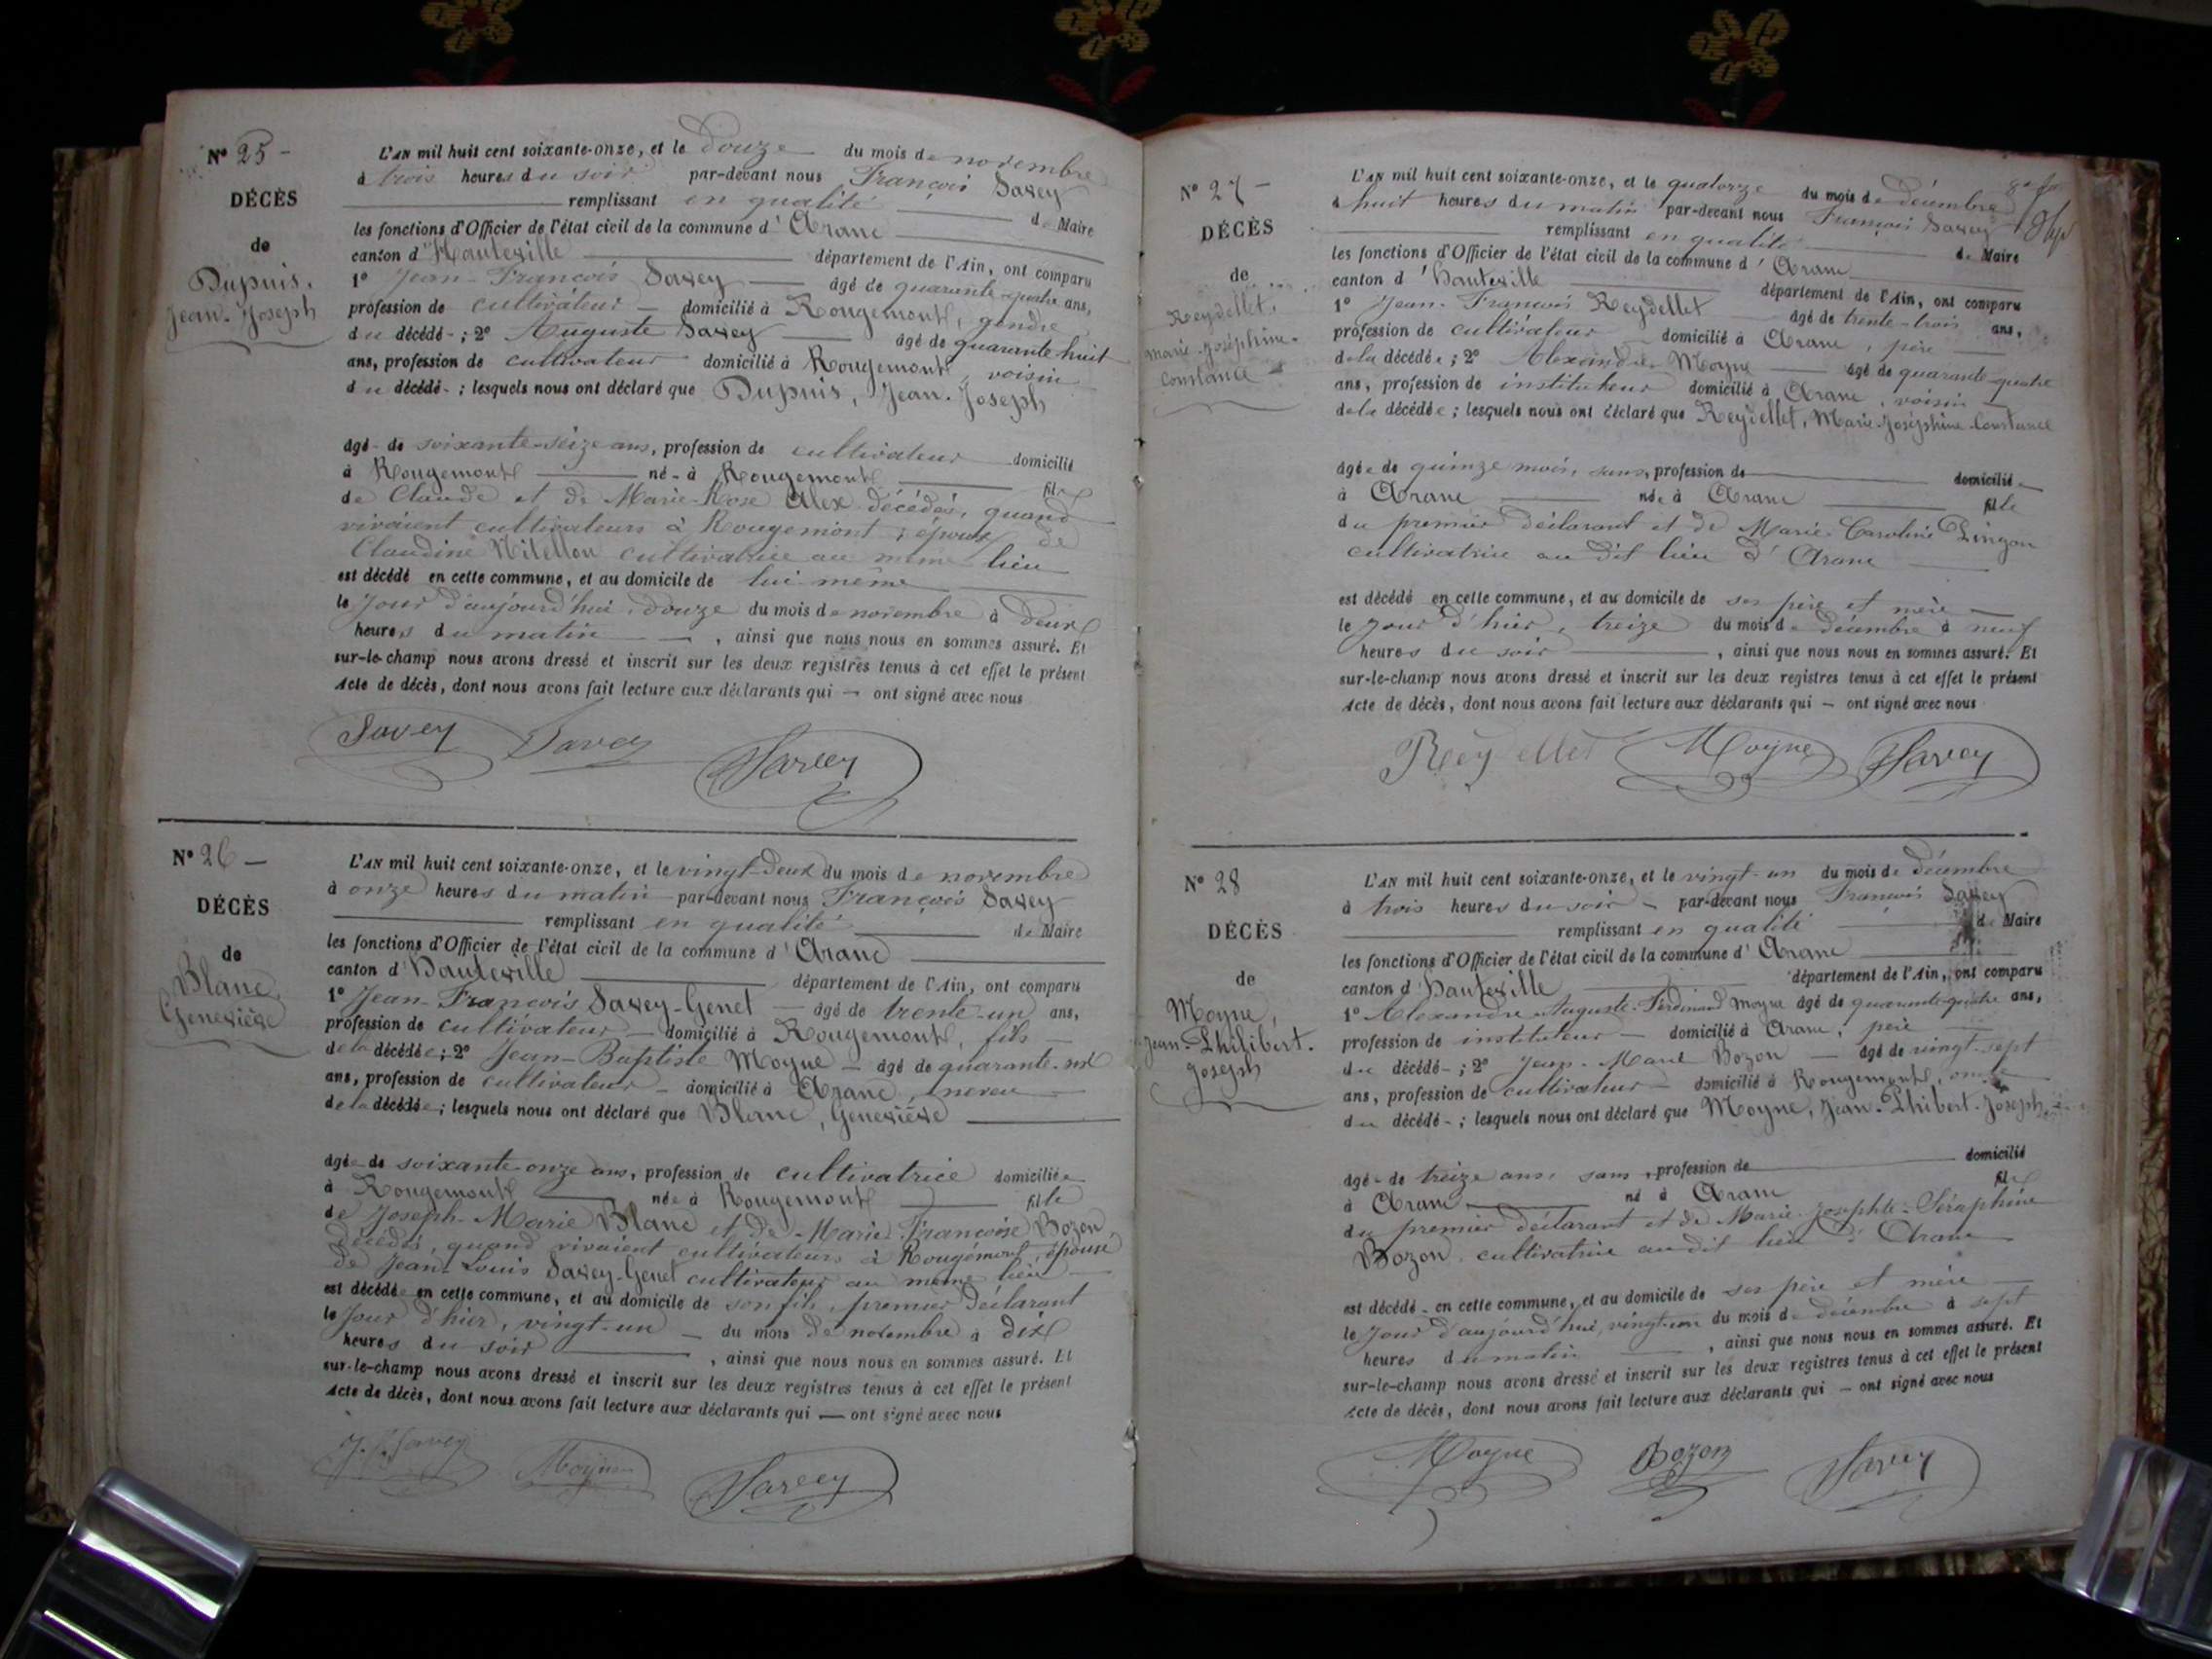 Nº 25 -
DÉCÈS
de
Dupuis,
Jean-Joseph
L'AN mil huit cent soixante-onze, et le douze du mois de novembre
à trois heures du soir par-devant nous François Savey
remplissant en qualité de Maire
les fonctions d'Officier de l'état civil de la commune d'Aranc
canton d'Hauteville département de l'Ain, ont comparu
1º Jean-François Savey âgé de quarante-quatre ans,
profession de cultivateur domicilié à Rougemont, gendre
du décédé - ; 2º Auguste Savey âgé de quarante-huit
ans, profession de cultivateur domicilié à Rougemont, voisin
du décédé - ; lesquels nous ont déclaré que Dupuis, Jean-Joseph
âgé - de soixante-seize ans, profession de cultivateur domicilié
à Rougemont né - à Rougemont fils
de Claude et de Marie-Rose Alex décédés, quand
vivaient cultivateurs à Rougemont ; époux de
Claudine cultivatrice au même lieu
est décédé en cette commune, et au domicile de lui-même
le jour d'aujourd'hui, douze du mois de novembre à deux
heures du matin, ainsi que nous nous en sommes assuré. Et
sur-le-champ nous avons dressé et inscrit sur les deux registres tenus à cet effet le présent
Acte de décès, dont nous avons fait lecture aux déclarants qui — ont signé avec nous
Savey Savey Savey
Nº 26 —
DÉCÈS
de
Blanc,
Geneviève
L'AN mil huit cent soixante-onze, et le vingt-deux du mois de novembre
à onze heures du matin par-devant nous François Savey
remplissant en qualité de Maire
les fonctions d'Officier de l'état civil de la commune d'Aranc
canton d'Hauteville département de l'Ain, ont comparu
1º Jean-François Savey-Genet âgé de trente-un ans,
profession de cultivateur domicilié à Rougemont, fils
de la décédée ; 2º Jean-Baptiste Moyne - âgé de quarante-six
ans, profession de cultivateur - domicilié à Aranc, neveu
de la décédée ; lesquels nous ont déclaré que Blanc, Geneviève
âgée de soixante-onze ans, profession de cultivatrice domiciliée
à Rougemont née à Rougemont fille
de Joseph-Marie Blanc et de Marie Françoise Bozon
décédés, quand vivaient cultivateurs à Rougemont, épouse
de Jean-Louis Savey-Genet cultivateur au même lieu
est décédée en cette commune, et au domicile de son fils, premier déclarant
le jour d'hier, vingt-un du mois de novembre à dix
heures du soir, ainsi que nous nous en sommes assuré. Et
sur-le-champ nous avons dressé et inscrit sur les deux registres tenus à cet effet le présent
Acte de décès, dont nous avons fait lecture aux déclarants qui — ont signé avec nous
J. F. Savey Moyne Savey
Nº 27 -
DÉCÈS
de
Reydellet,
Marie-Joséphine-
Constance
L'AN mil huit cent soixante-onze, et le quatorze du mois de décembre
à huit heures du matin par-devant nous François Savey
remplissant en qualité de Maire
les fonctions d'Officier de l'état civil de la commune d'Aranc
canton d'Hauteville département de l'Ain, ont comparu
1º Jean-François Reydellet âgé de trente-trois ans,
profession de cultivateur domicilié à Aranc, père
de la décédée ; 2º Alexandre Moyne âgé de quarante-quatre
ans, profession de instituteur domicilié à Aranc, voisin
de la décédée ; lesquels nous ont déclaré que Reydellet, Marie-Joséphine-Constance
âgée de quinze mois, sans, profession de domicilié
à Aranc née à Aranc fille
du premier déclarant et de Marie-Caroline Lingon
cultivatrice au dit lieu d'Aranc
est décédé en cette commune, et au domicile de ses père et mère
le jour d'hier, treize du mois de décembre à neuf
heures du soir, ainsi que nous nous en sommes assuré. Et
sur-le-champ nous avons dressé et inscrit sur les deux registres tenus à cet effet le présent
Acte de décès, dont nous avons fait lecture aux déclarants qui — ont signé avec nous
Reydellet Moyne Savey
Nº 28
DÉCÈS
de
Moyne,
Jean-Philibert-
Joseph
L'AN mil huit cent soixante-onze, et le vingt-un du mois de décembre
à trois heures du soir - par-devant nous François Savey
remplissant en qualité de Maire
les fonctions d'Officier de l'état civil de la commune d'Aranc
canton d'Hauteville département de l'Ain, ont comparu
1º Alexandre-Auguste-Ferdinand Moyne âgé de quarante-quatre ans,
profession de instituteur domicilié à Aranc, père
du décédé - ; 2º Jean-Marie Bozon âgé de vingt-sept
ans, profession de cultivateur domicilié à Rougemont, oncle
du décédé - ; lesquels nous ont déclaré que Moyne, Jean-Phibert-Joseph
âgé - de treize ans, sans, profession de domicilié
à Aranc né à Aranc fils
du premier déclarant et de Marie-Josephte-Séraphine
Bozon cultivatrice audit lieu d'Aranc
est décédé - en cette commune, et au domicile de ses père et mère
le jour d'aujourd'hui, vingt-un du mois de décembre à sept
heures du matin, ainsi que nous nous en sommes assuré. Et
sur-le-champ nous avons dressé et inscrit sur les deux registres tenus à cet effet le présent
Acte de décès, dont nous avons fait lecture aux déclarants qui — ont signé avec nous
Moyne Bozon Savey